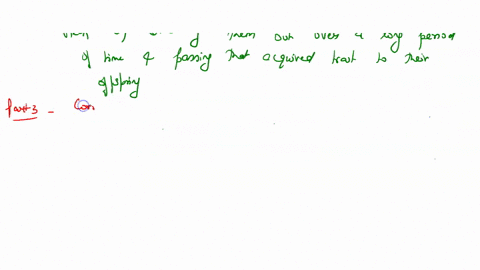 them out over a long period
of time & passing that acquired trait to their
offspring
Part 3 - Con